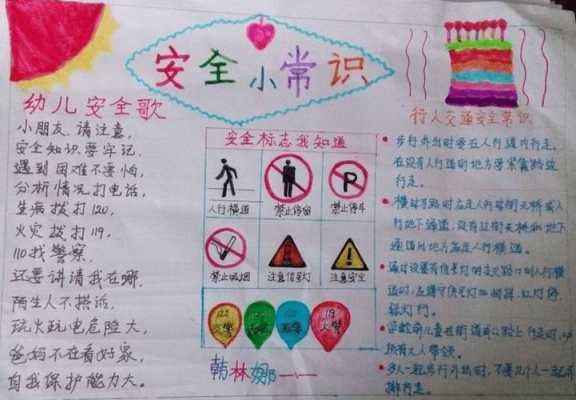 安全小常识
幼儿安全歌
小朋友,请注意,
安全知识要牢记,
遇到困难不要怕,
分析情况打电话,
生病拨打120,
火灾拨打119,
110找警察,
还要讲清我在哪,
陌生人不搭话,
玩火玩电危险大,
爸妈不在看好家,
自我保护能力大。
安全标志我知道
人行横道
禁止停留
P
禁止停车
禁止吸烟
注意信号灯
注意安全
119
火警
韩林娜
行人交通安全常识
步行外出时要在人行道内行走,
在没有人行道的地方要靠路边
行走。
横过马路时应走人行过街天桥或人
行地下通道,没有过街天桥和地下
通道的地方应走人行横道。
通过设置有信号灯的交叉路口的人行横
道时,应遵守信号灯的
绿灯行。
学龄前儿童在街道或公路上行走时,
须有大人带领。
多人一起步行外出时,不要几个人一起并
排行走。